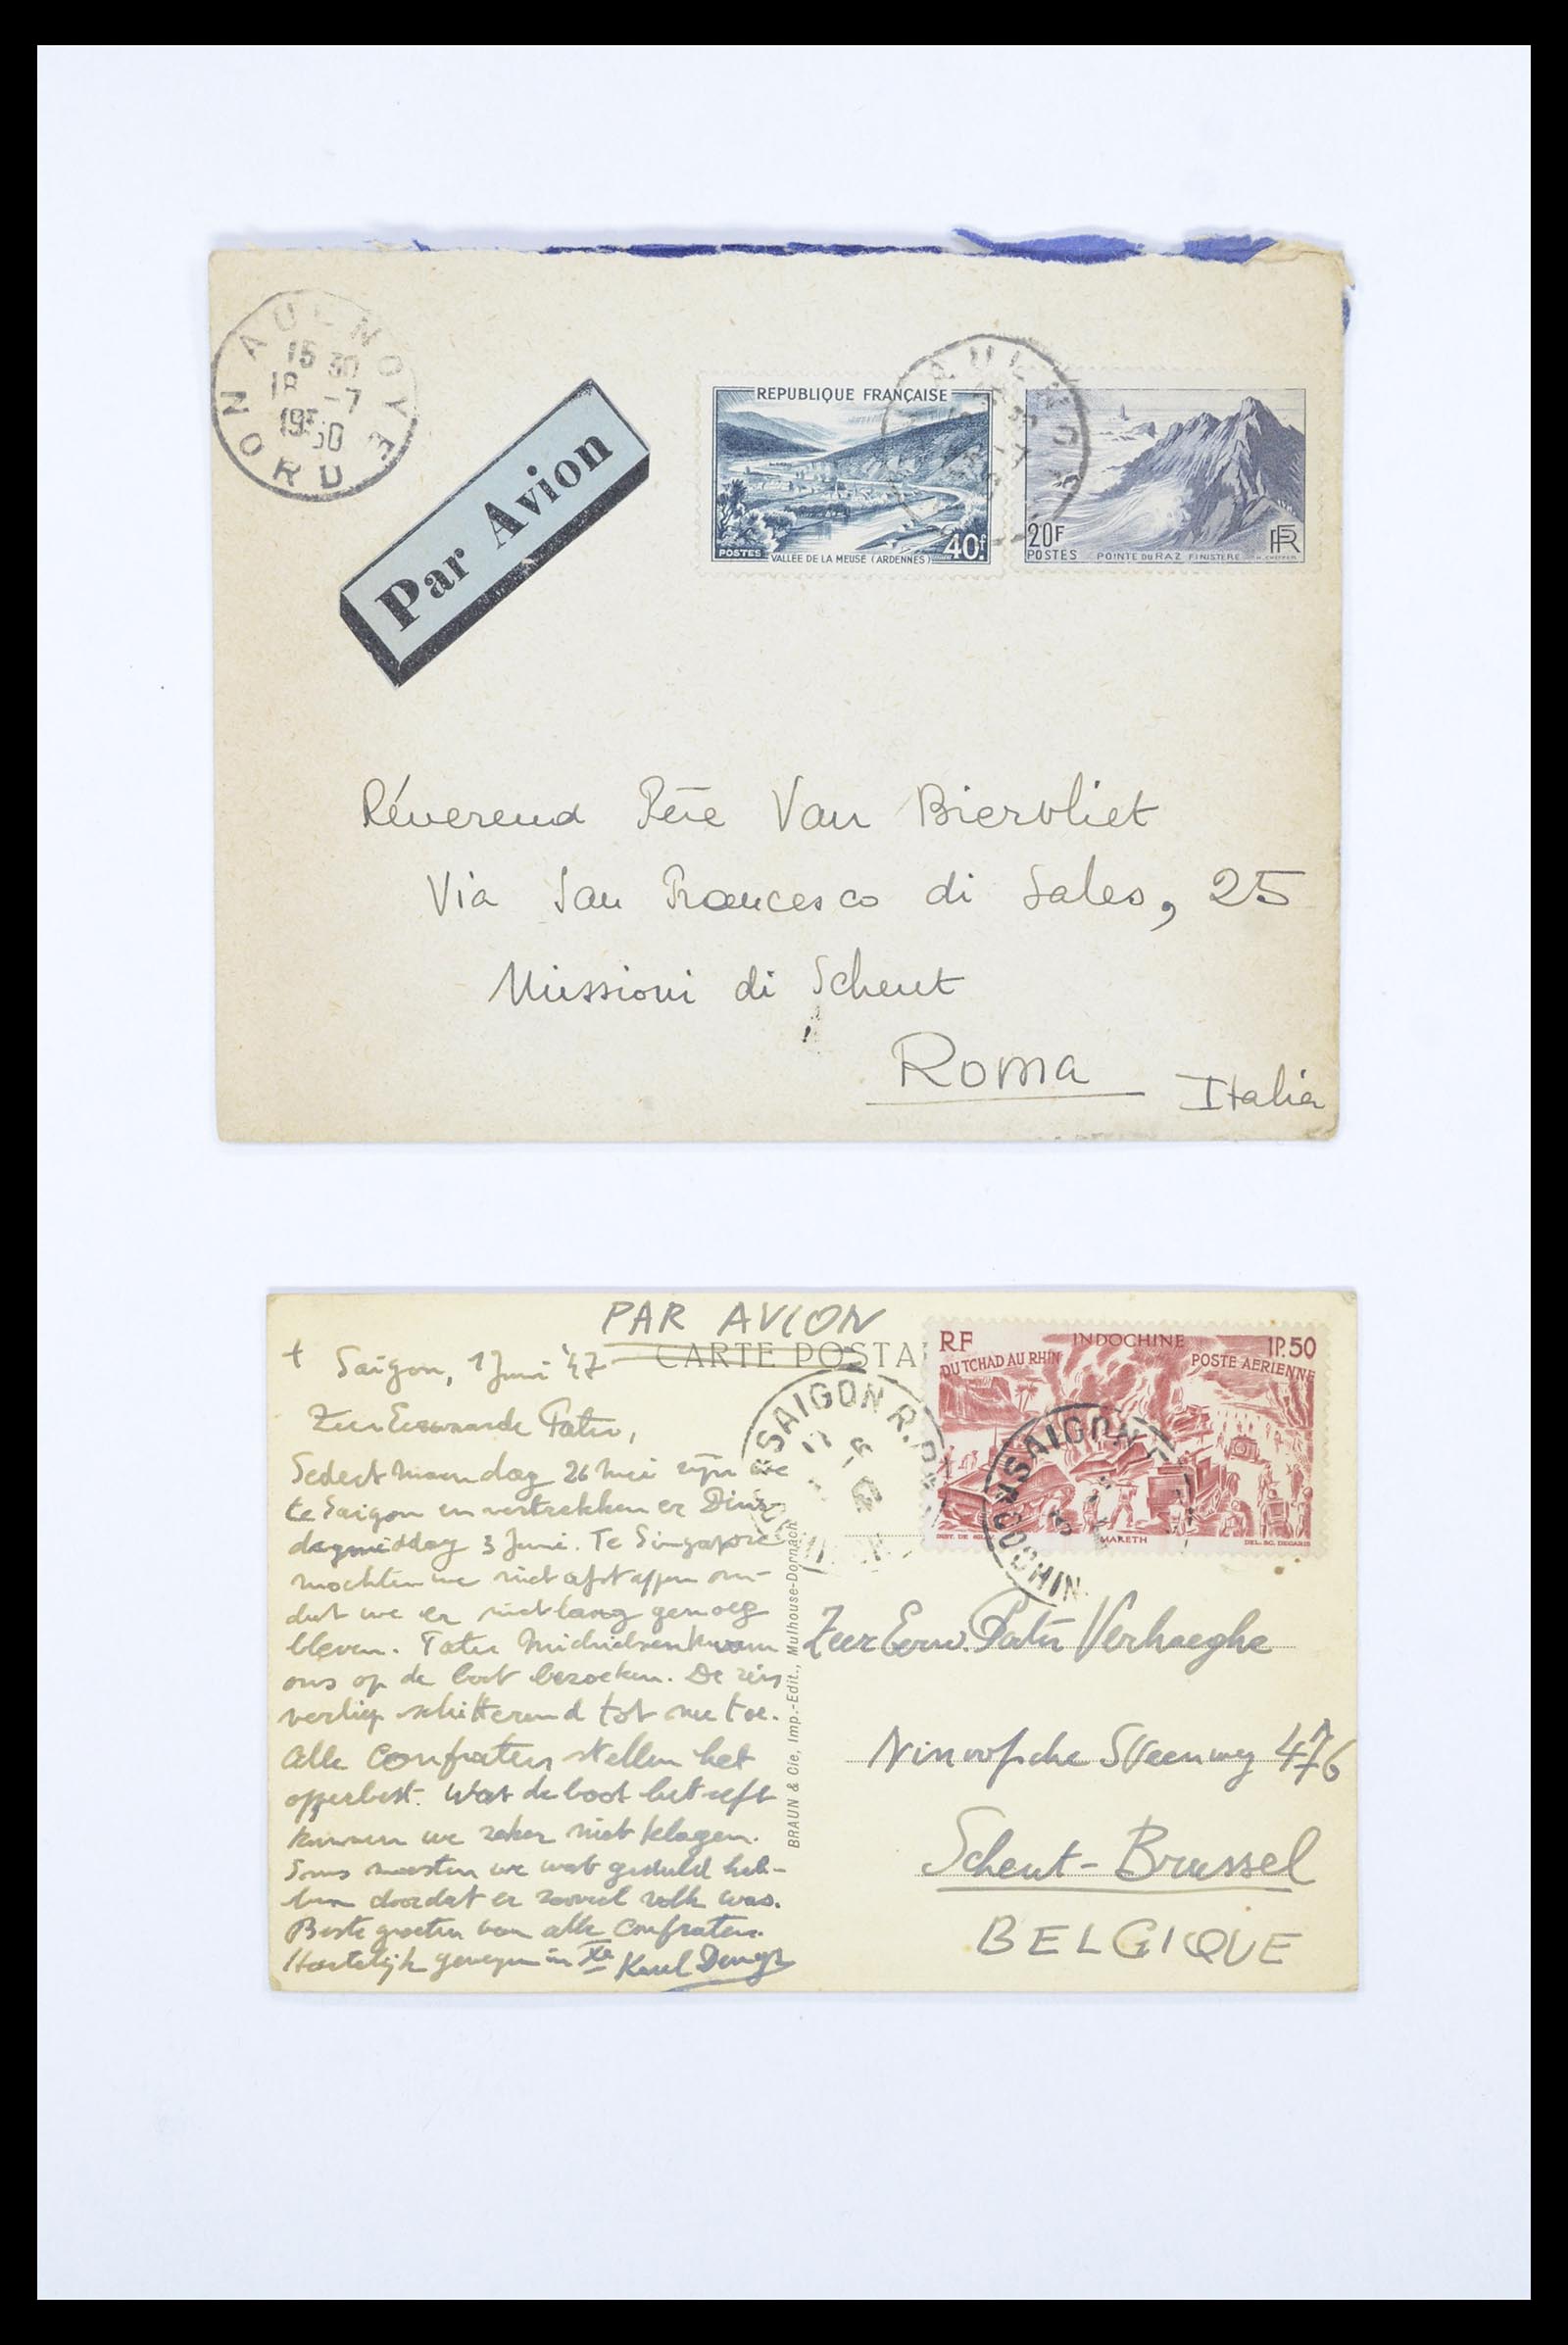 AULNOYE
15 30
18 -7
1950
NORD
Par Avion
REPUBLIQUE FRANÇAISE
POSTES VALLÉE DE LA MEUSE (ARDENNES) 40f.
20F
POSTES POINTE DU RAZ FINISTÈRE RF
Révérend Père Van Biervliet
Via San Francesco di Sales, 25
Missioni di Scheut
Roma
Italia
PAR AVION
CARTE POSTA
+ Saigon, 1 Juni '47
Zeer Eerwaarde Pater,
Sedert maandag 26 mei zijn we
te Saigon en vertrekken er Dins-
dagmiddag 3 Juni. Te Singapore
mochten we niet afstappen om-
dat we er niet lang genoeg
bleven. Pater Michielsen kwam
ons op de boot bezoeken. De reis
verliep schitterend tot nu toe.
Alle Confraters stellen het
opperbest. Wat de boot betreft
kunnen we zeker niet klagen.
Soms moesten we wat geduld heb-
ben doordat er zooveel volk was.
Beste groeten van alle Confraters.
Hartelijk genegen in Xo
Karel
BRAUN & Cie, Imp.-Edit., Mulhouse-Dornach
RF INDOCHINE 1P.50
DU TCHAD AU RHIN POSTE AERIENNE
MARETH
DEL. SC. DEGARIS
SAIGON R.P.
SAIGON
COCHIN
Zeer Eerw. Pater Verhaeghe
Ninoofsche Steenweg 476
Scheut-Brussel
BELGIQUE